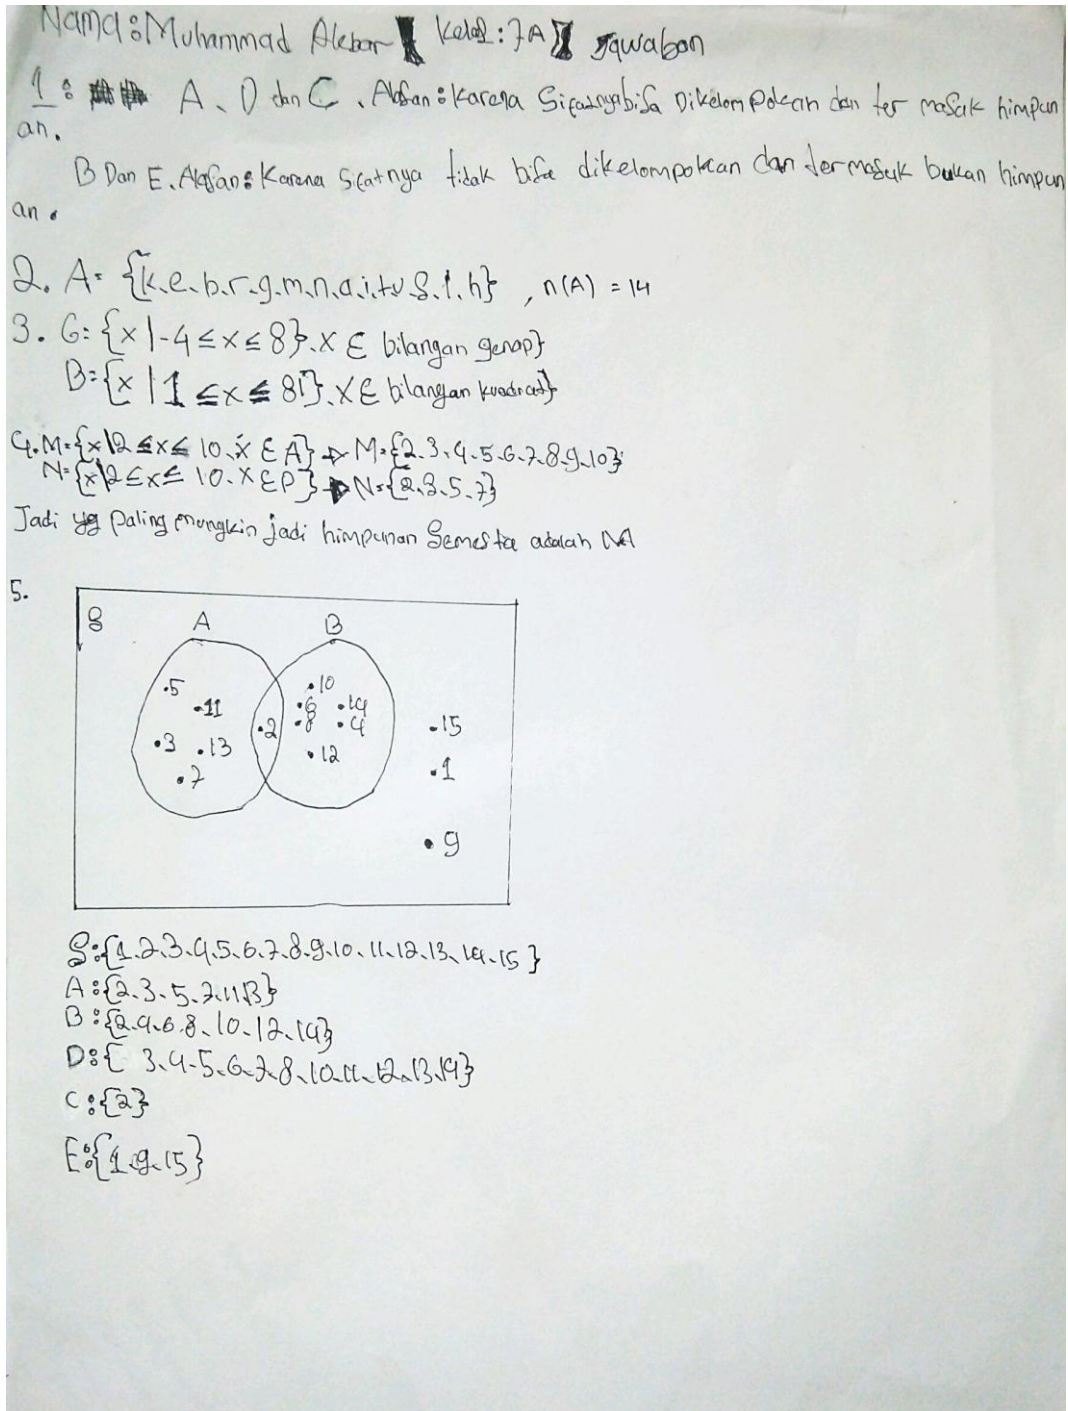 Nama : Muhammad Akbar Kelas : 7A Jawaban
1 : A, D dan C, Alasan : Karena Sifatnya bisa Dikelompokan dan ter masuk himpun
an.
B Dan E. Alasan : Karena Sifatnya tidak bisa dikelompokan dan termasuk bukan himpun
an.
2. A = {k.e.b.r.g.m.n.a.i.t.u.s.l.h} , n(A) = 14
3. G = {x | -4 ≤ x ≤ 8}. x ∈ bilangan genap}
B = {x | 1 ≤ x ≤ 81}. x ∈ bilangan kuadrat}
4. M = {x | 2 ≤ x ≤ 10. x ∈ A} → M = {2.3.4.5.6.7.8.9.10}
N = {x | 2 ≤ x ≤ 10. x ∈ P} → N = {2.3.5.7}
Jadi yg Paling mungkin jadi himpunan Semesta adalah M
5.
S A B
.5 .10
.11 .6 .14
.2 .8 .4 .15
.3 .13 .12
.7 .1
.9
S : {1.2.3.4.5.6.7.8.9.10.11.12.13.14.15}
A : {2.3.5.7.11.13}
B : {2.4.6.8.10.12.14}
D : { 3.4.5.6.7.8.10.11.12.13.14}
C : {2}
E : {1.9.15}